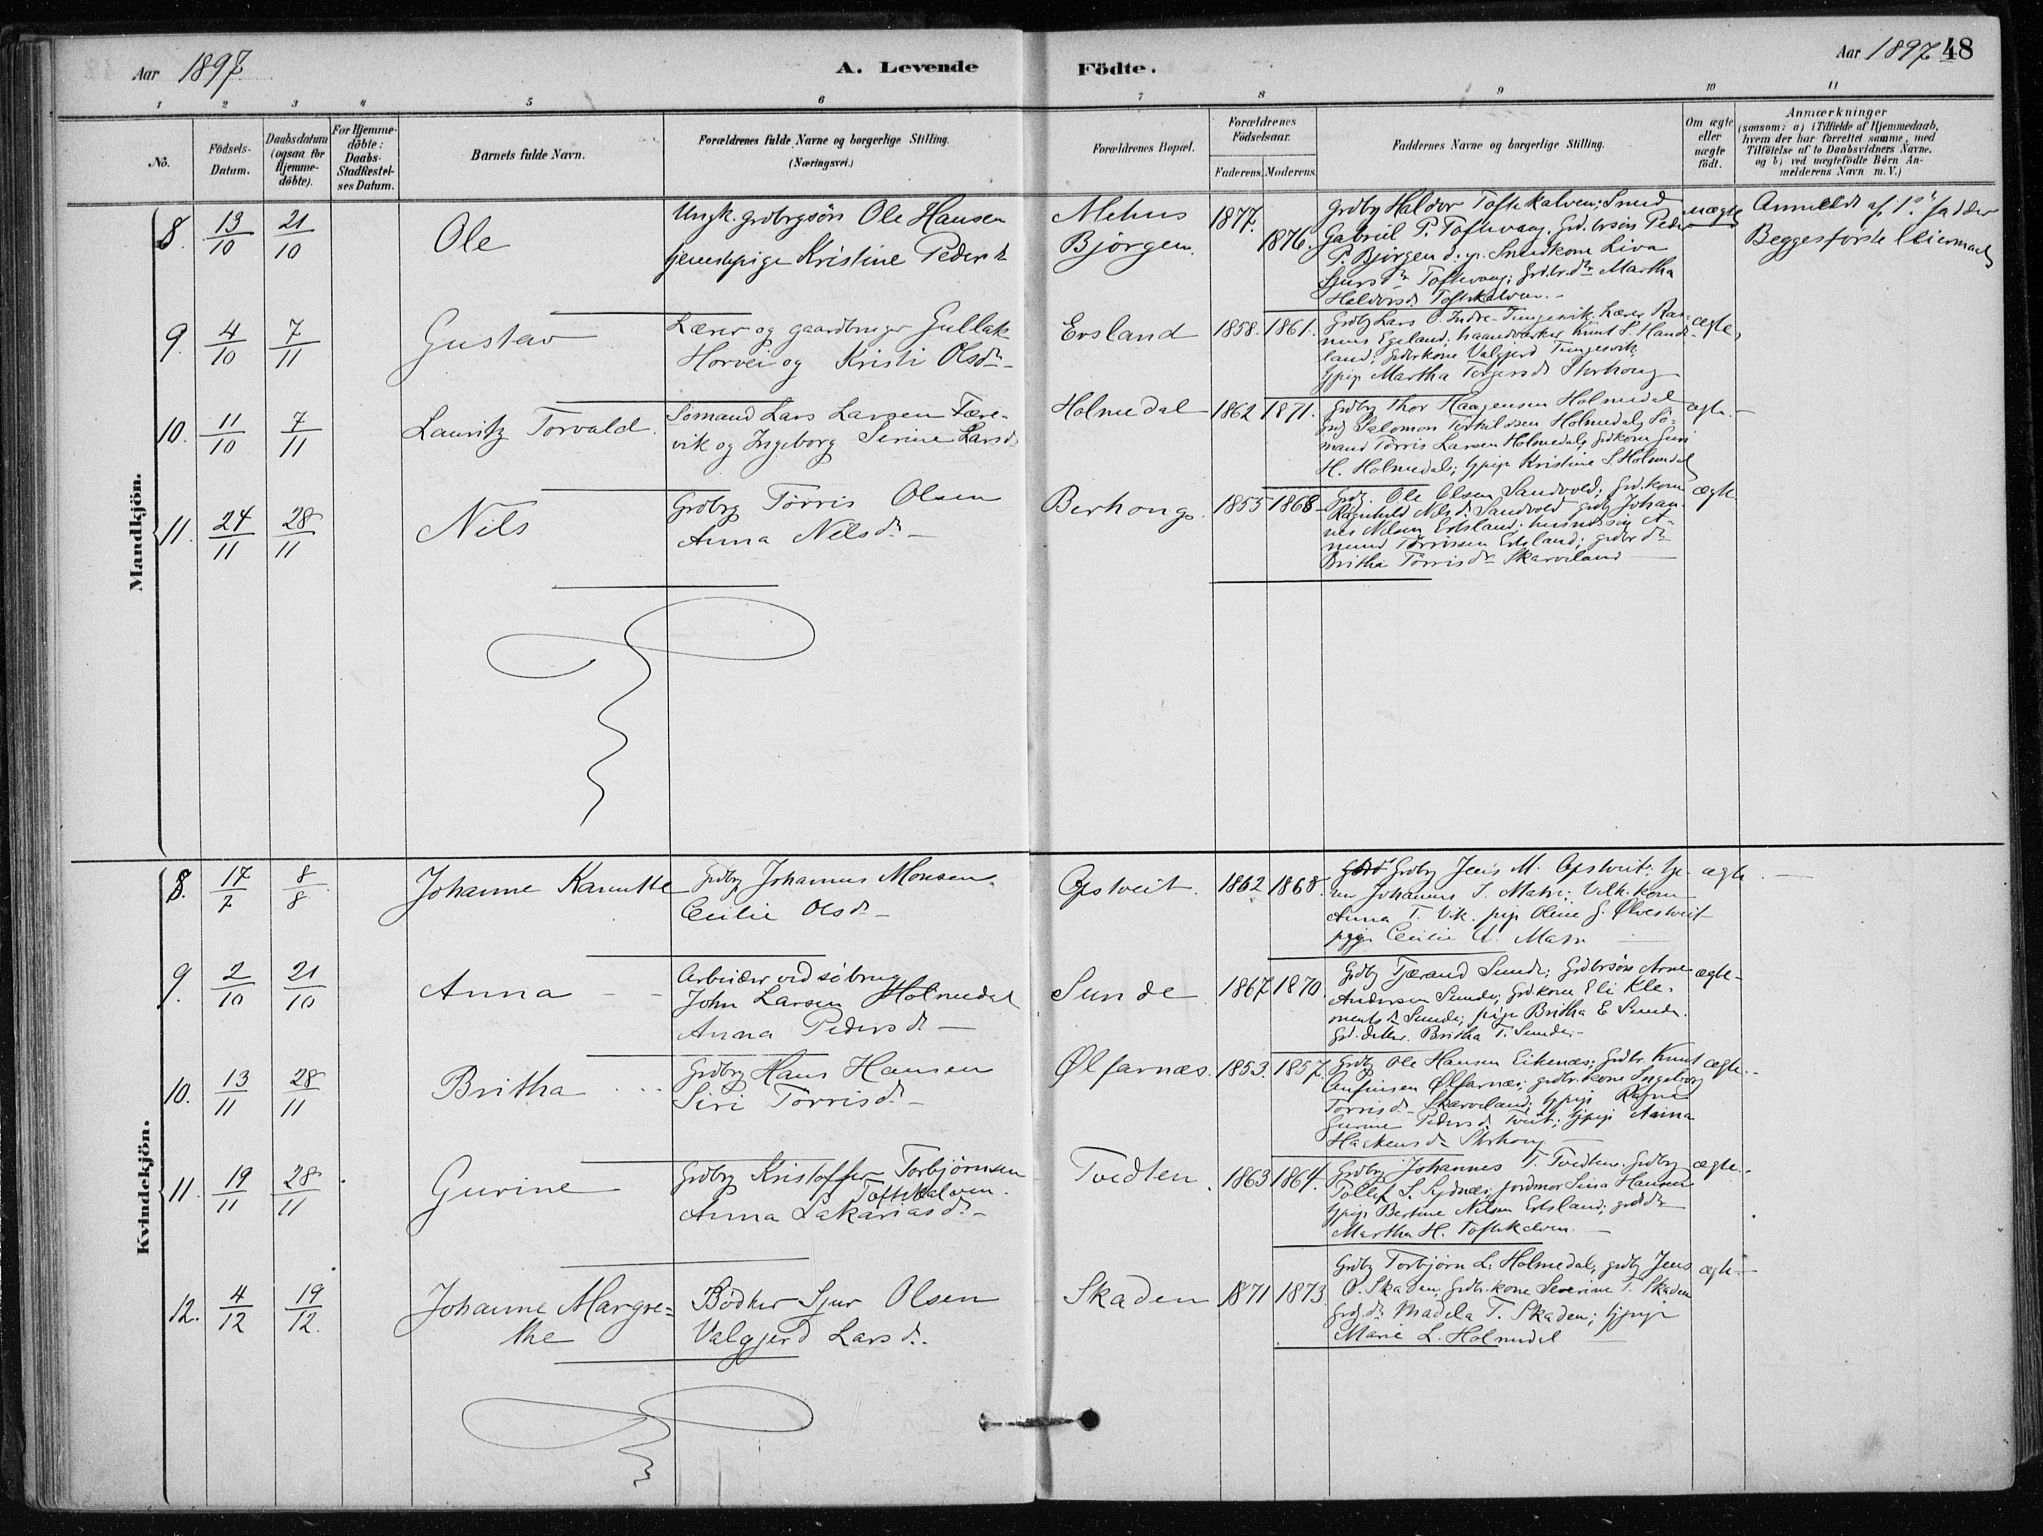 Aar 1897
A. Levende
Födte.
Aar 1897 48
1 2 3 4 5 6 7 8 9 10 11
No.
Födsels-
Datum.
Daabsdatum
(ogsaa for
Hjemme-
döbte).
For Hjemme-
döbte:
Daabs-
Stadfæstel-
ses Datum.
Barnets fulde Navn.
Forældrenes fulde Navne og borgerlige Stilling.
(Næringsvei.)
Forældrenes Bopæl.
Forældrenes
Födselsaar.
Faderens.
Moderens.
Faddernes Navne og borgerlige Stilling.
Om ægte
eller
uægte
født.
Anmærkninger
(saasom: a) i Tilfælde af Hjemmedaab,
hvem der har forrettet samme, med
Tilföielse af to Daabsvidners Navne.
og b) ved uægtefödte Börn An-
melderens Navn m. V.)
Mandkjön.
8. 13/10 21/10
Ole
Ungk. grdbrgsön Ole Hansen
tjenestepige Kristine Pedersd
Mehus
Bjørgen.
1877.
1876.
Grdbr Haldor Toftekalven; Smed
Gabriel P. Toftevaag. Grd.brsøn Peder
P. Bjørgen d. y. Smedkone Liva
Sjursdr Toftevaag; Grd.br.dr Martha
Haldorsd. Toftekalven.
uægte
Anmeldt af 1ste fadder
Begges første leiermaal
9. 4/10 7/11
Gustav
Lærer og gaardbruger Gullak
Horvei og Kristi Olsdr
Ersland
1858. 1861.
Grdbr Lars O. Indre-Tungesvik. Lærer Ras-
mus Egeland; haandværker Knut S. Hand-
land; grdbrkone Valgjerd Tungesvik
tjpige Martha Torgersd Storhoug
ægte
10. 11/10 7/11
Lauritz Torvald.
Sømand Lars Larsen Fære-
vik og Ingeborg Serine Larsd.
Holmedal
1862 1871.
Grdbr Thor Haagensen Holmedal
Salomon Torkildsen Holmedal; Sø-
mand Tørris Larsen Holmedal; grdkone Guri
H. Holmedal; tjpige Kristine S. Holmedal
ægte
11. 24/11 28/11
Nils
Grdbrg Tørris Olsen
Anna Nilsdr
Berhoug.
1855 1868
Grdbr. Ole Olsen Sandvold; grd.kone
Ragnhild Nilsd. Sandvold grdbr Johan-
nes Nilsen Ersland; A-
mund Tørrissen Ersland; grdbr dr
Britha Tørrisdr Skarveland
ægte
Kvindekjön.
8. 17/7 8/8
Johanne Kamitte
Grdbrg Johannes Monsen.
Cecilie Olsdr
Opstveit.
1862 1868.
Grdbr Jens M. Opstveit; tje-
ner Johannes S. Matre;
Anna T. Vik. pige Oline G. Ølvestveit
pige Cecilie Matre
ægte
9. 2/10 21/10
Anna
Arbeider ved søbrug
John Larsen Holmedal
Anna Pedersdr
Sunde
1867 1870.
Grdbr Tjerand Sunde; Grdbrsøn Arne
Andersen Sunde; Grdkone Eli Kle-
mentsdr Sunde; pige Britha E Sunde.
Grd.datter. Britha T. Sunde.
ægte
10. 13/11 28/11
Britha
Grdbrg Hans Hansen
Siri Tørrisdr
Ølfarnæs.
1853. 1857.
Grdbr Ole Hansen Eikenæs; grdbr. Knut
Anfinsen Ølfarnæs; grdbr.kone Ingeborg
Tørrisdr Skarveland; tjpige Ragna
Gurine Pedersd. Tveit; tjpige Anna
Haakensdr Storhoug
ægte
11. 19/11 28/11
Gurine
Grdbrg Kristoffer Torbjørnsen
Toftekalven.
Anna Sakariasdr
Tvedten.
1863 1864.
Grdbrg Johannes T. Tvedten. Grdbrg
Tollef S. Sydnæs; jordmor Sina Hansen
tjpige Bertine Nilsen Ersland; grdbrdr
Martha H. Toftekalven.
ægte
12. 4/12 19/12
Johanne Margre-
the
Bødker Sjur Olsen
Valgjerd Larsdr.
Skaden
1871 1873
Grdbr Torbjørn L. Holmedal, grdbr Jens
O. Skaden, grdbr.kone Severine T. Skaden
grdbr.dr Madela T. Skaden; tjpige
Marie L. Holmedal
ægte